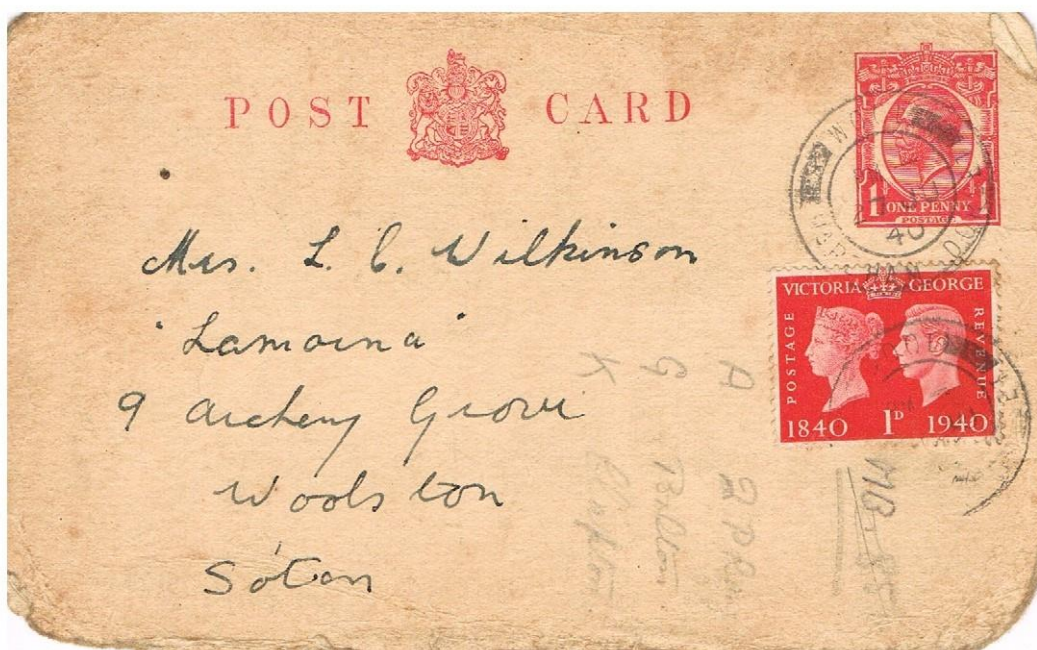 POST CARD
1 ONE PENNY 1
POSTAGE
40
VICTORIA GEORGE
POSTAGE
REVENUE
1840 1D 1940
Mrs. L. C. Wilkinson
"Lamorna"
9 Archery Grove
Woolston
S'oton
A
G
K
Bolton